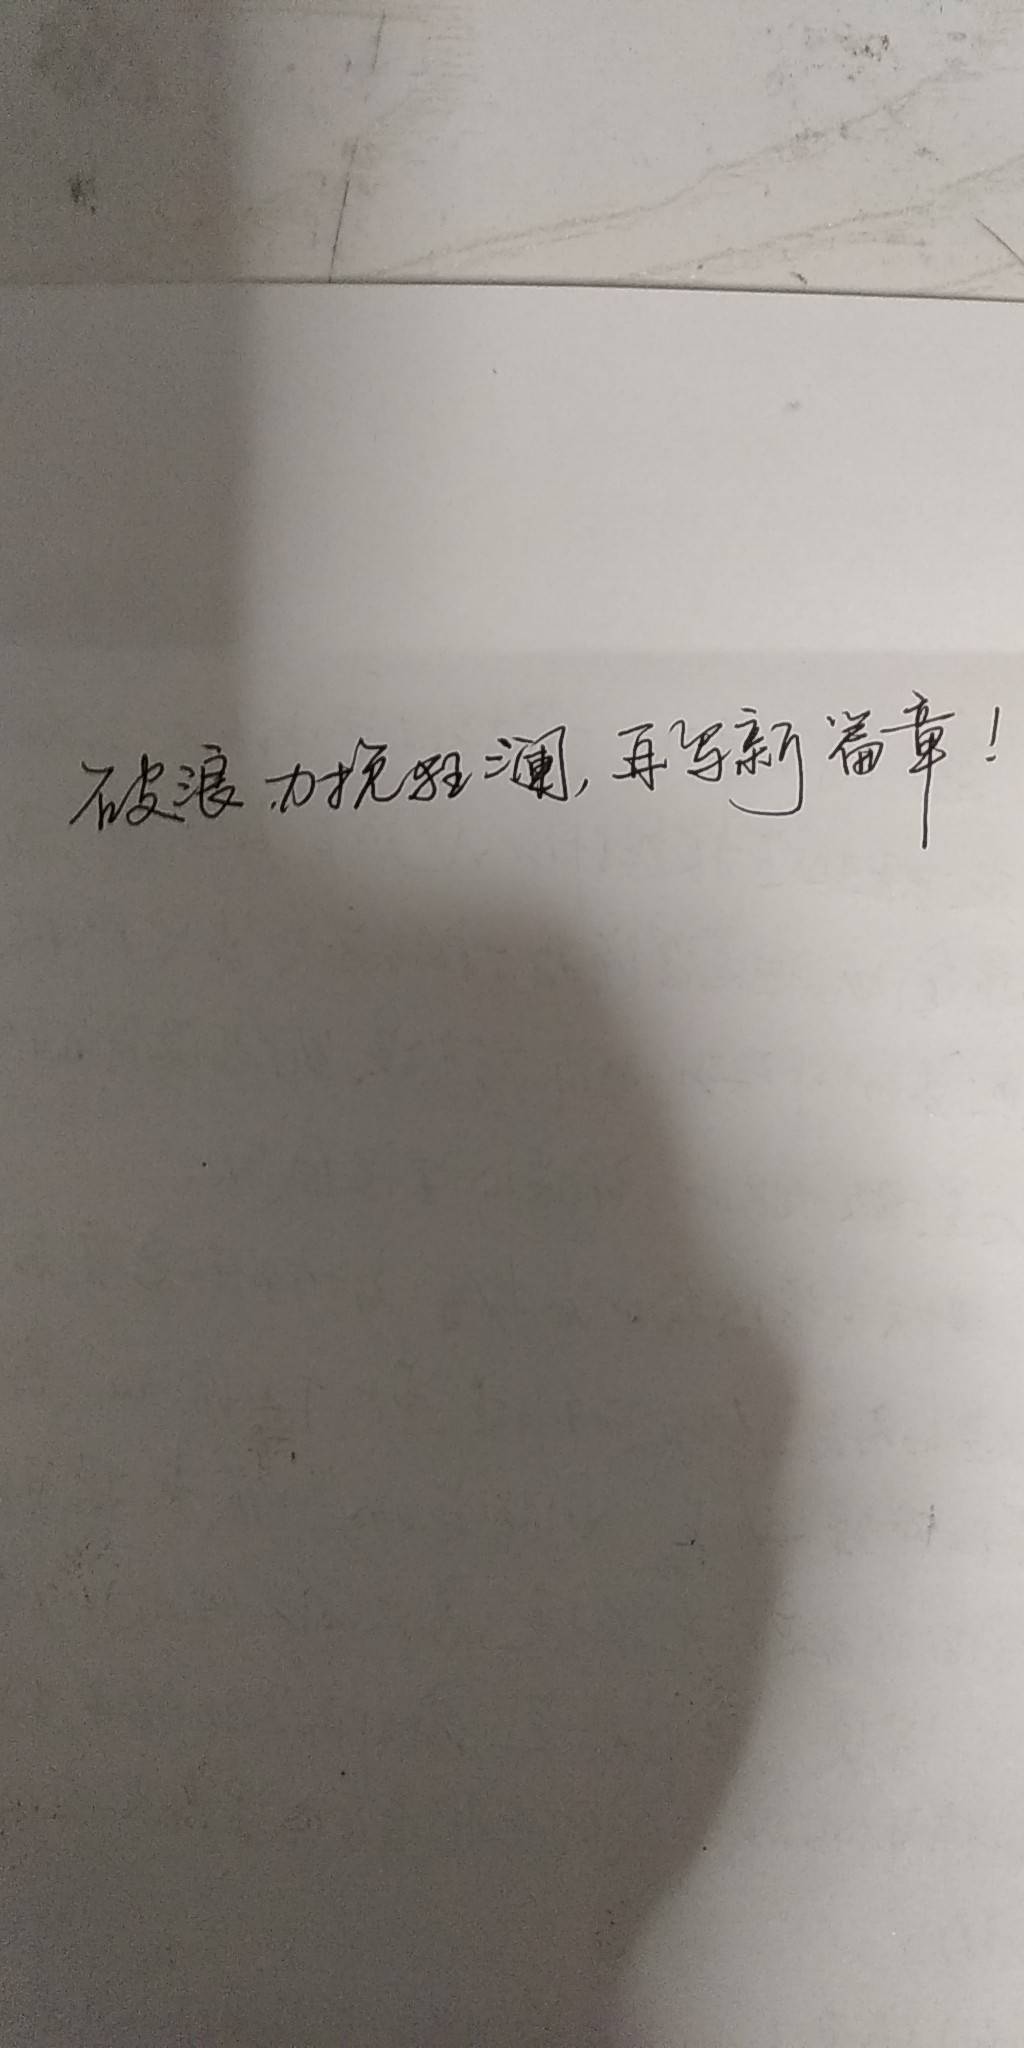 破浪力挽狂澜，再写新篇章！